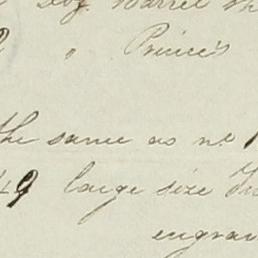 Doz. Barrel
" Prince's
the same as no 1
49 large size
engrav